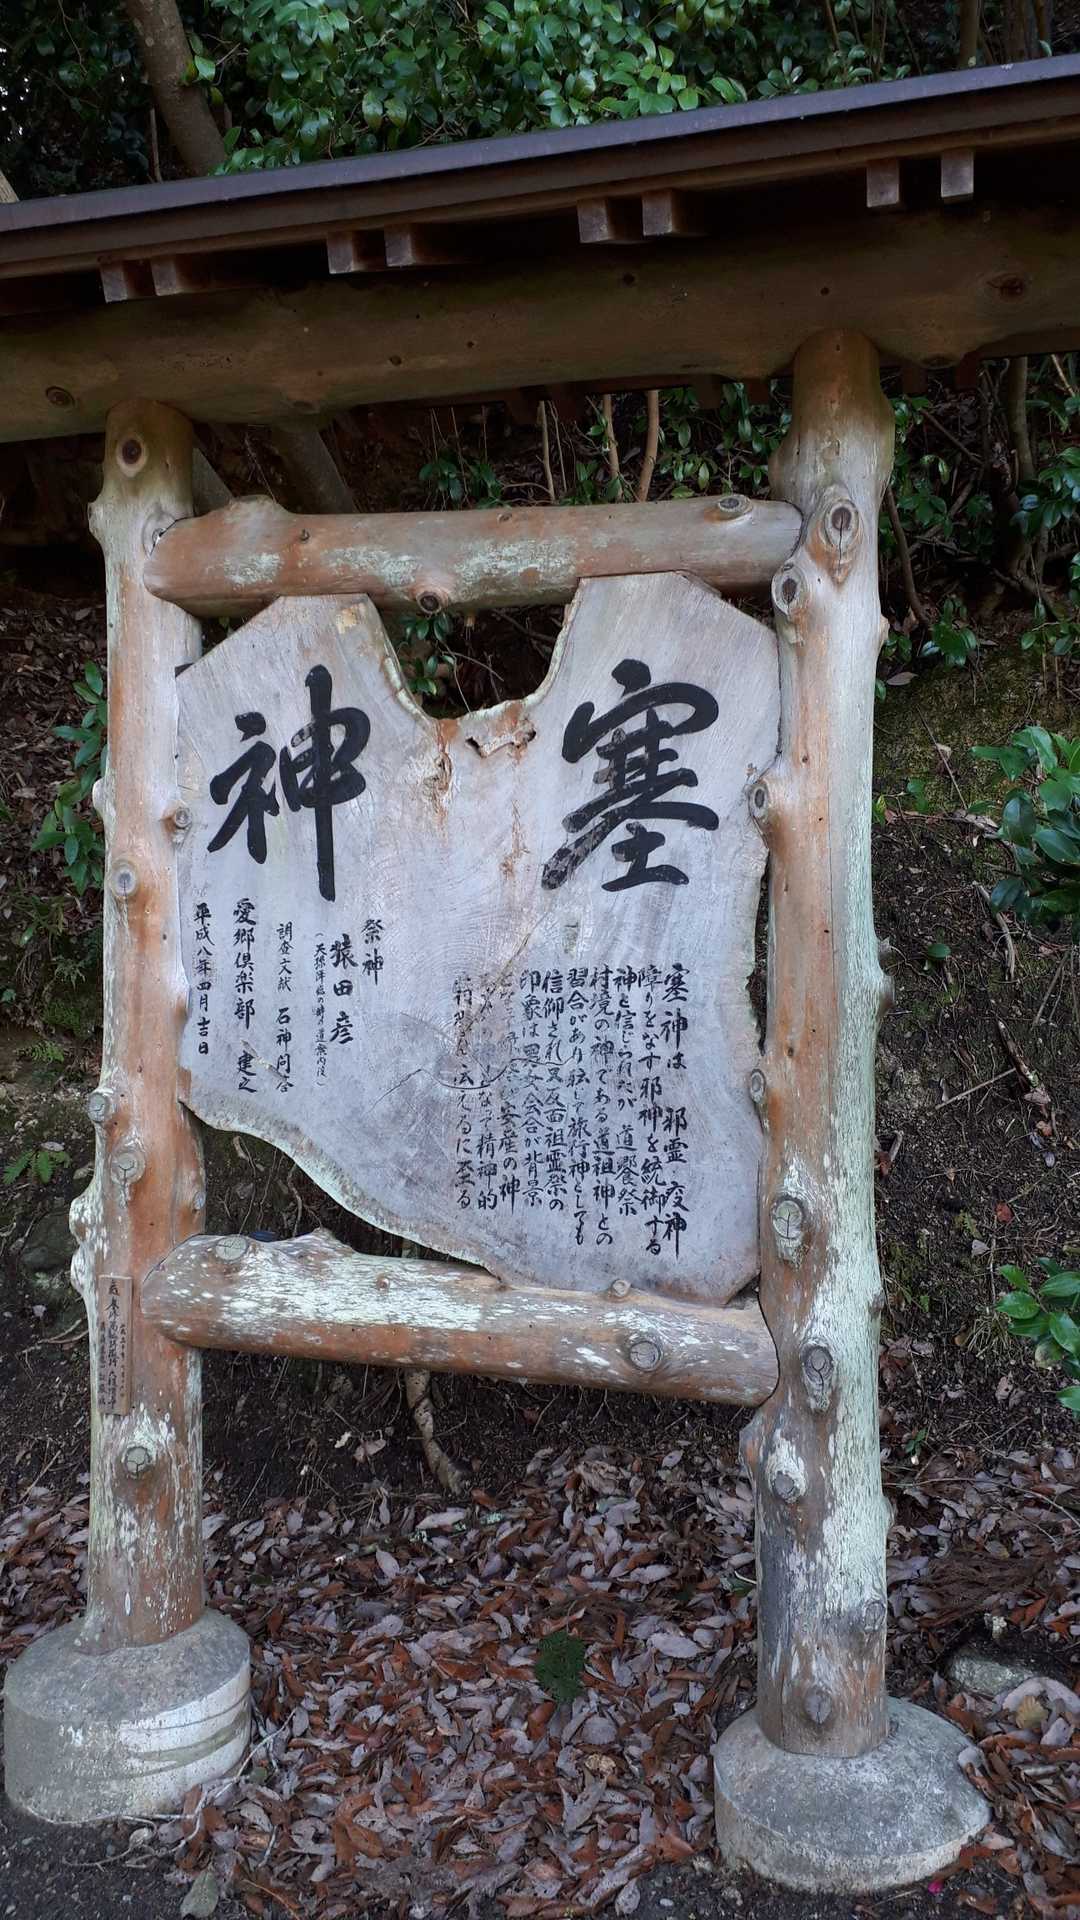 塞神
塞神は 邪霊 疫神
障りをなす邪神を統御する
神と信じられたが 道饗祭
村境の神である道祖神との
習合があり転じて旅行神としても
信仰され又反面祖霊祭の
印象は男女会合が背景
安産の神
なって精神的
伝えるに至る
祭神
猿田彦
(天孫降臨の時の道案内役)
調査文献 石神問答
愛郷倶楽部 建之
平成八年四月吉日